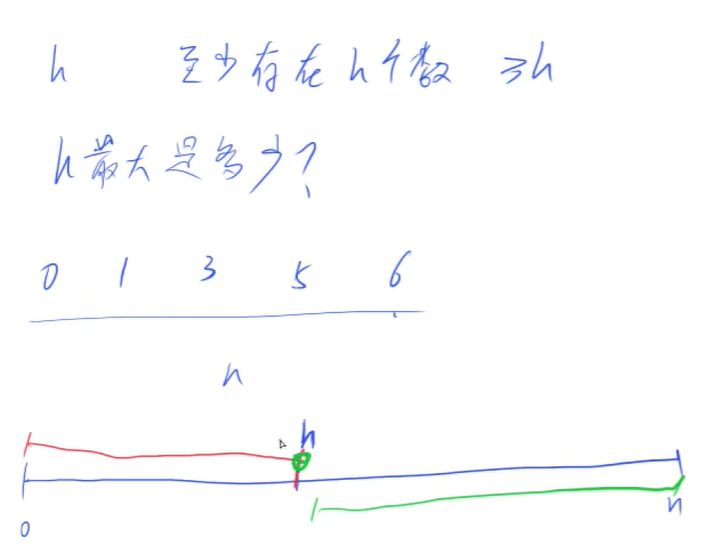 h 至少存在 h 个数 ≥h
h 最大是多少？
0 1 3 5 6
n
h
0 n